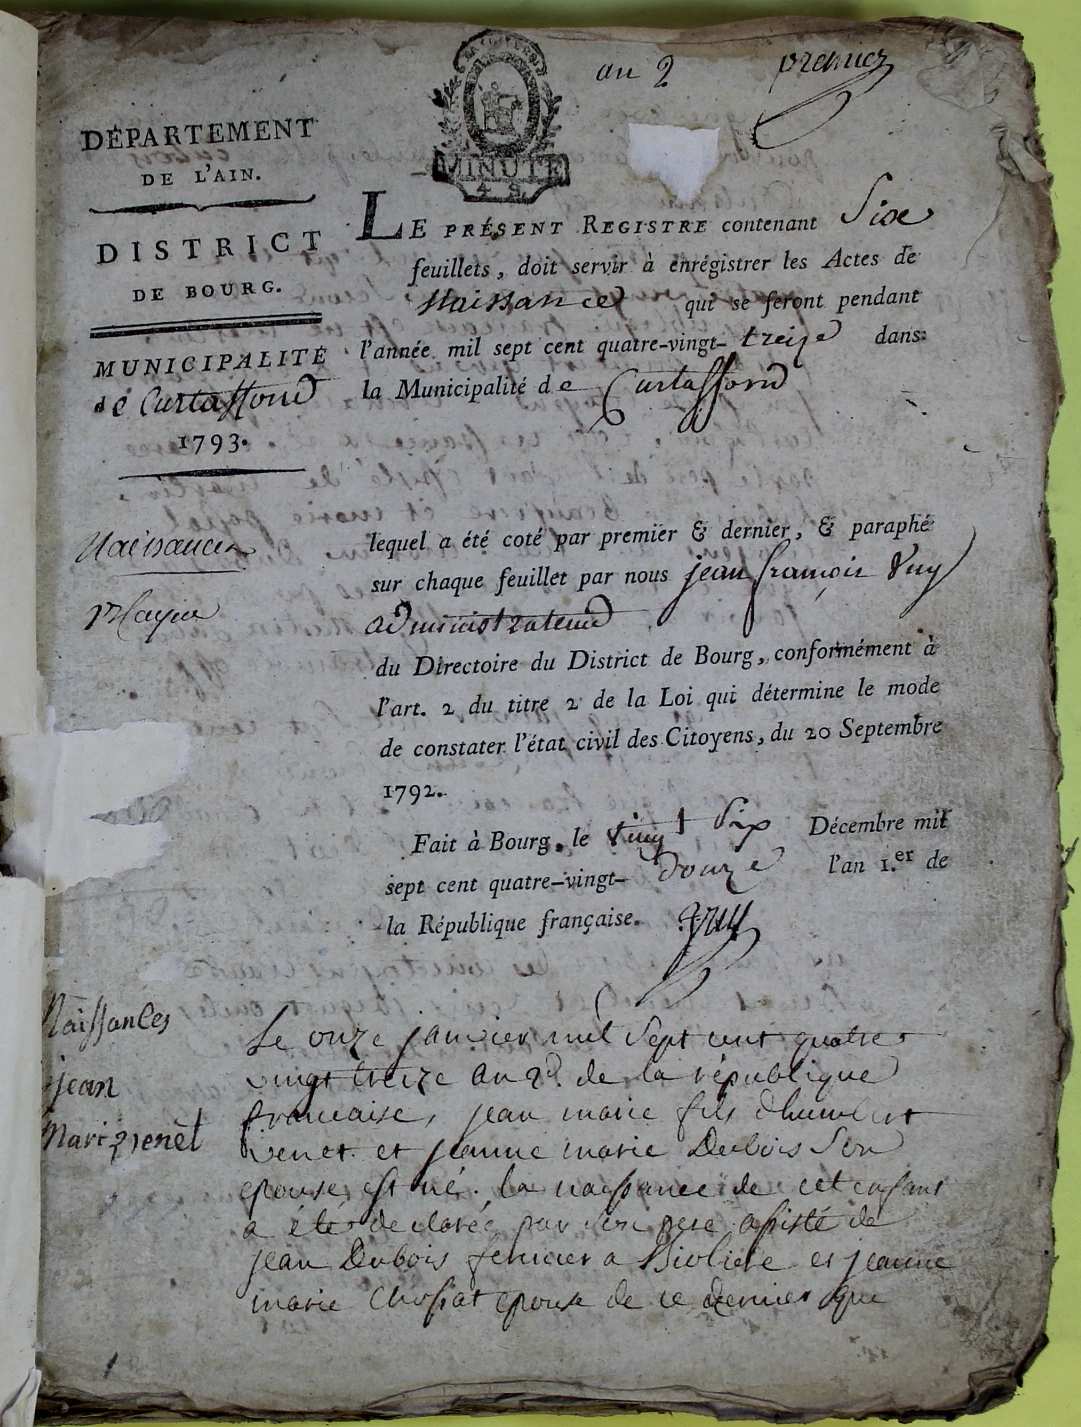 an 2 premier
MINUTE
DÉPARTEMENT
DE L'AIN.
DISTRICT
DE BOURG.
MUNICIPALITÉ
de Curtaffond
1793.
Naissances
LE PRÉSENT REGISTRE contenant Six
feuillets, doit servir à enrégistrer les Actes de
Naissances qui se feront pendant
l'année mil sept cent quatre-vingt-treize dans
la Municipalité de Curtaffond
lequel a été coté par premier & dernier, & paraphé
sur chaque feuillet par nous jean françois Vuy
administrateur
du Directoire du District de Bourg, conformément à
l'art. 2 du titre 2 de la Loi qui détermine le mode
de constater l'état civil des Citoyens, du 20 Septembre
1792.
Fait à Bourg, le vingt Six Décembre mil
sept cent quatre-vingt-douze l'an 1.er de
la République française. Vuy
Naissances
jean
Marie venet
Le onze janvier mil Sept cent quatre
vingt treize an 2d. de la république
francaise, jean marie fils d'humbert
venet et jeanne marie Dubois Son
epouse est né. la naissance de cet enfant
a été declarée par son pere assisté de
jean Dubois fermier a et jeanne
marie Chossat epouse de ce dernier que